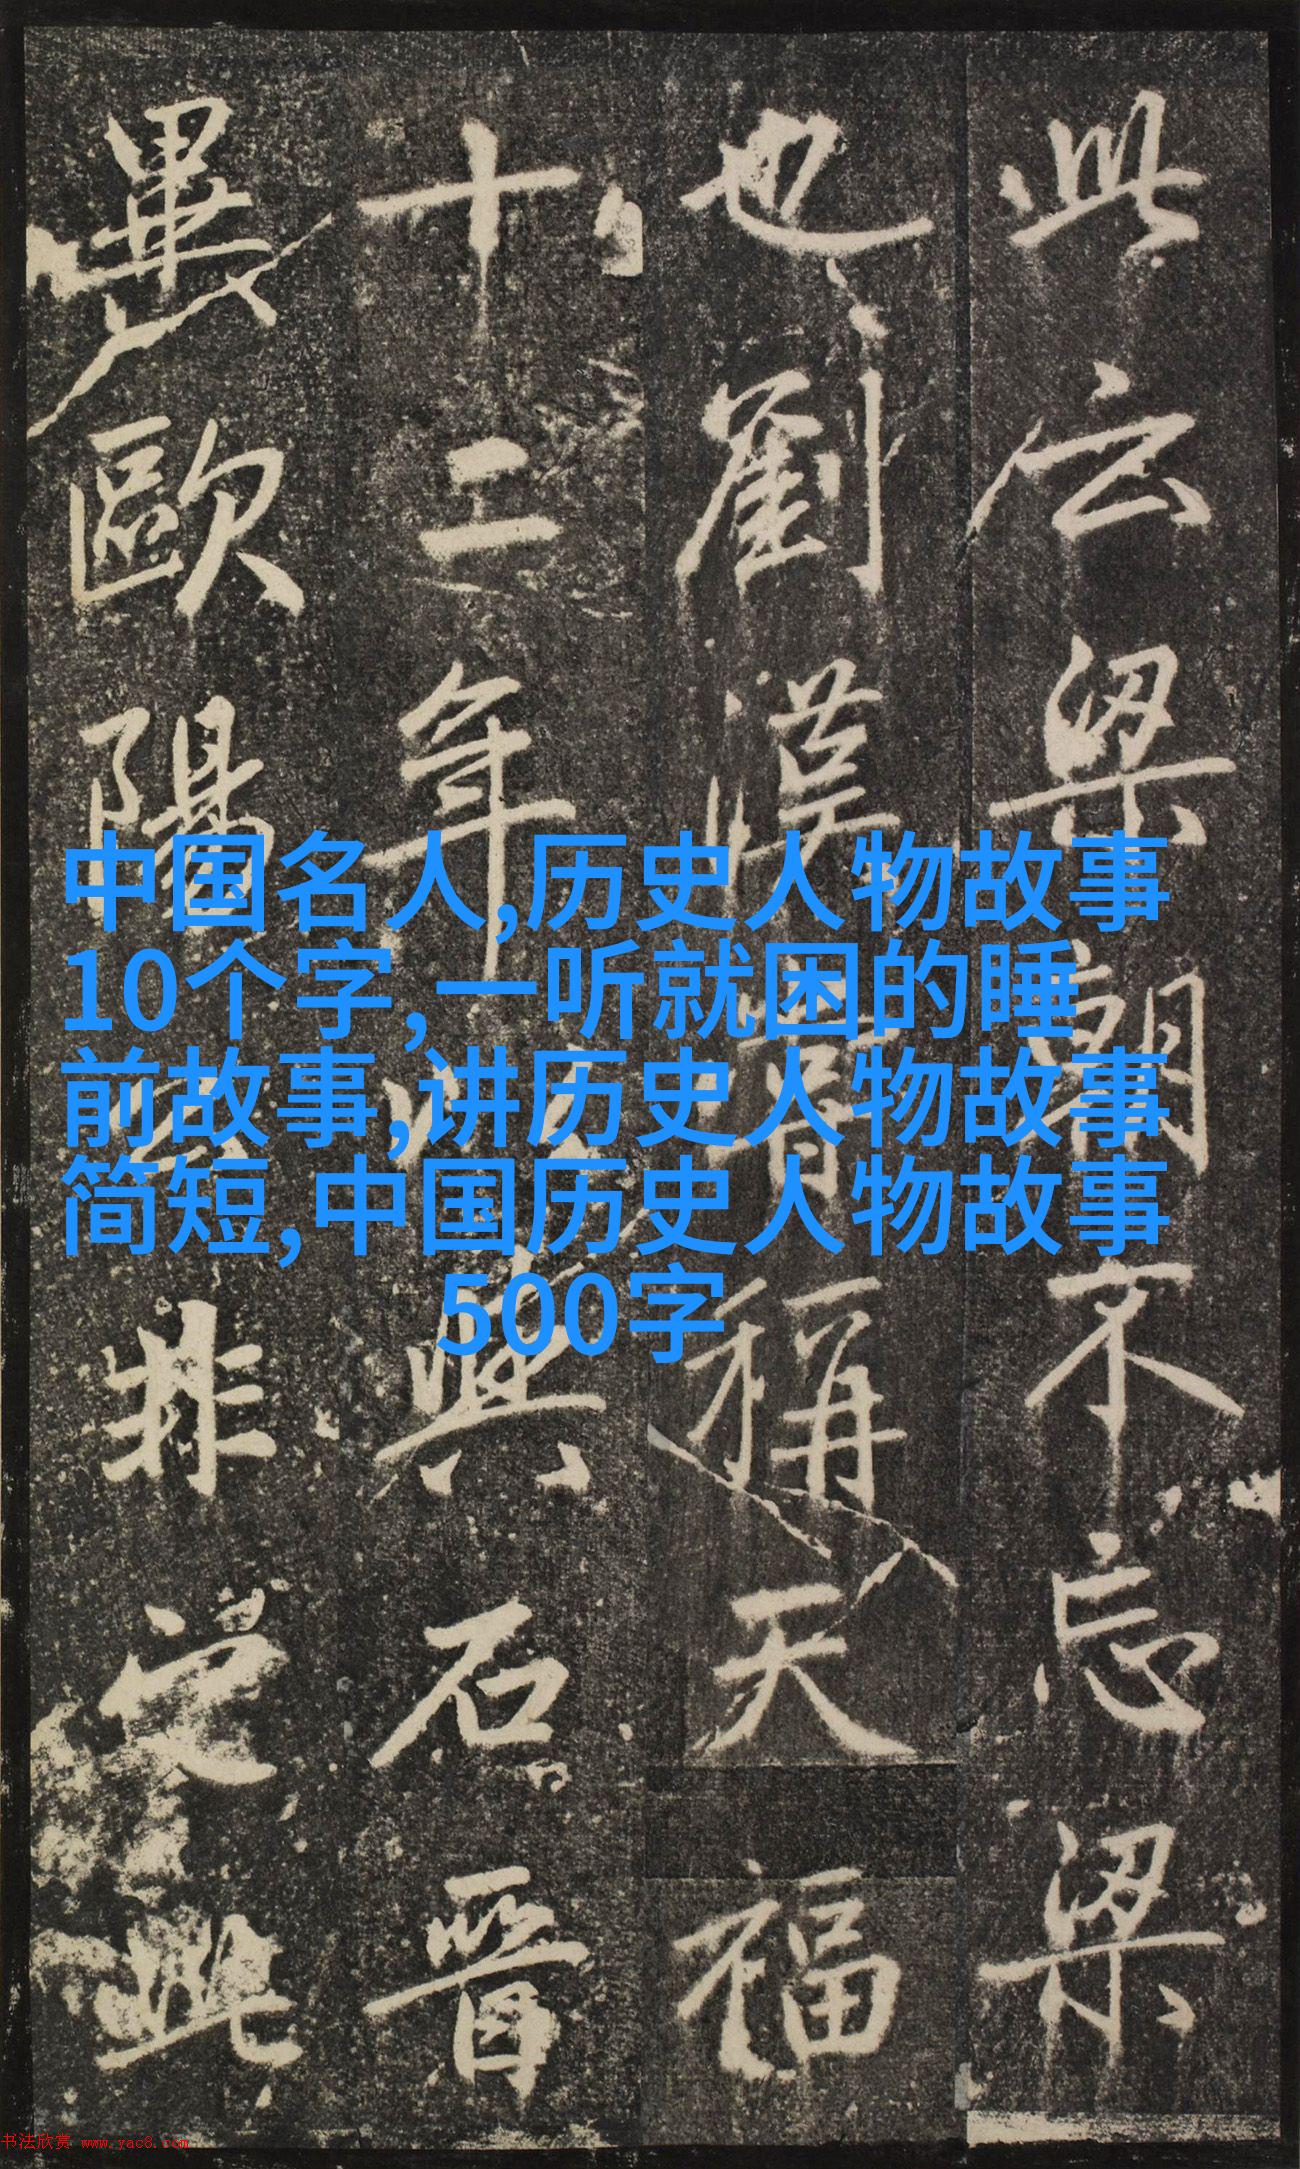 此云梁朝不忘梁
也劉漢稱天福
十二年以與石晉
畢歐陽非此
中国名人,历史人物故事
10个字，一听就困的睡
前故事,讲历史人物故事
简短,中国历史人物故事
500字
书法欣赏 www.yac8.com